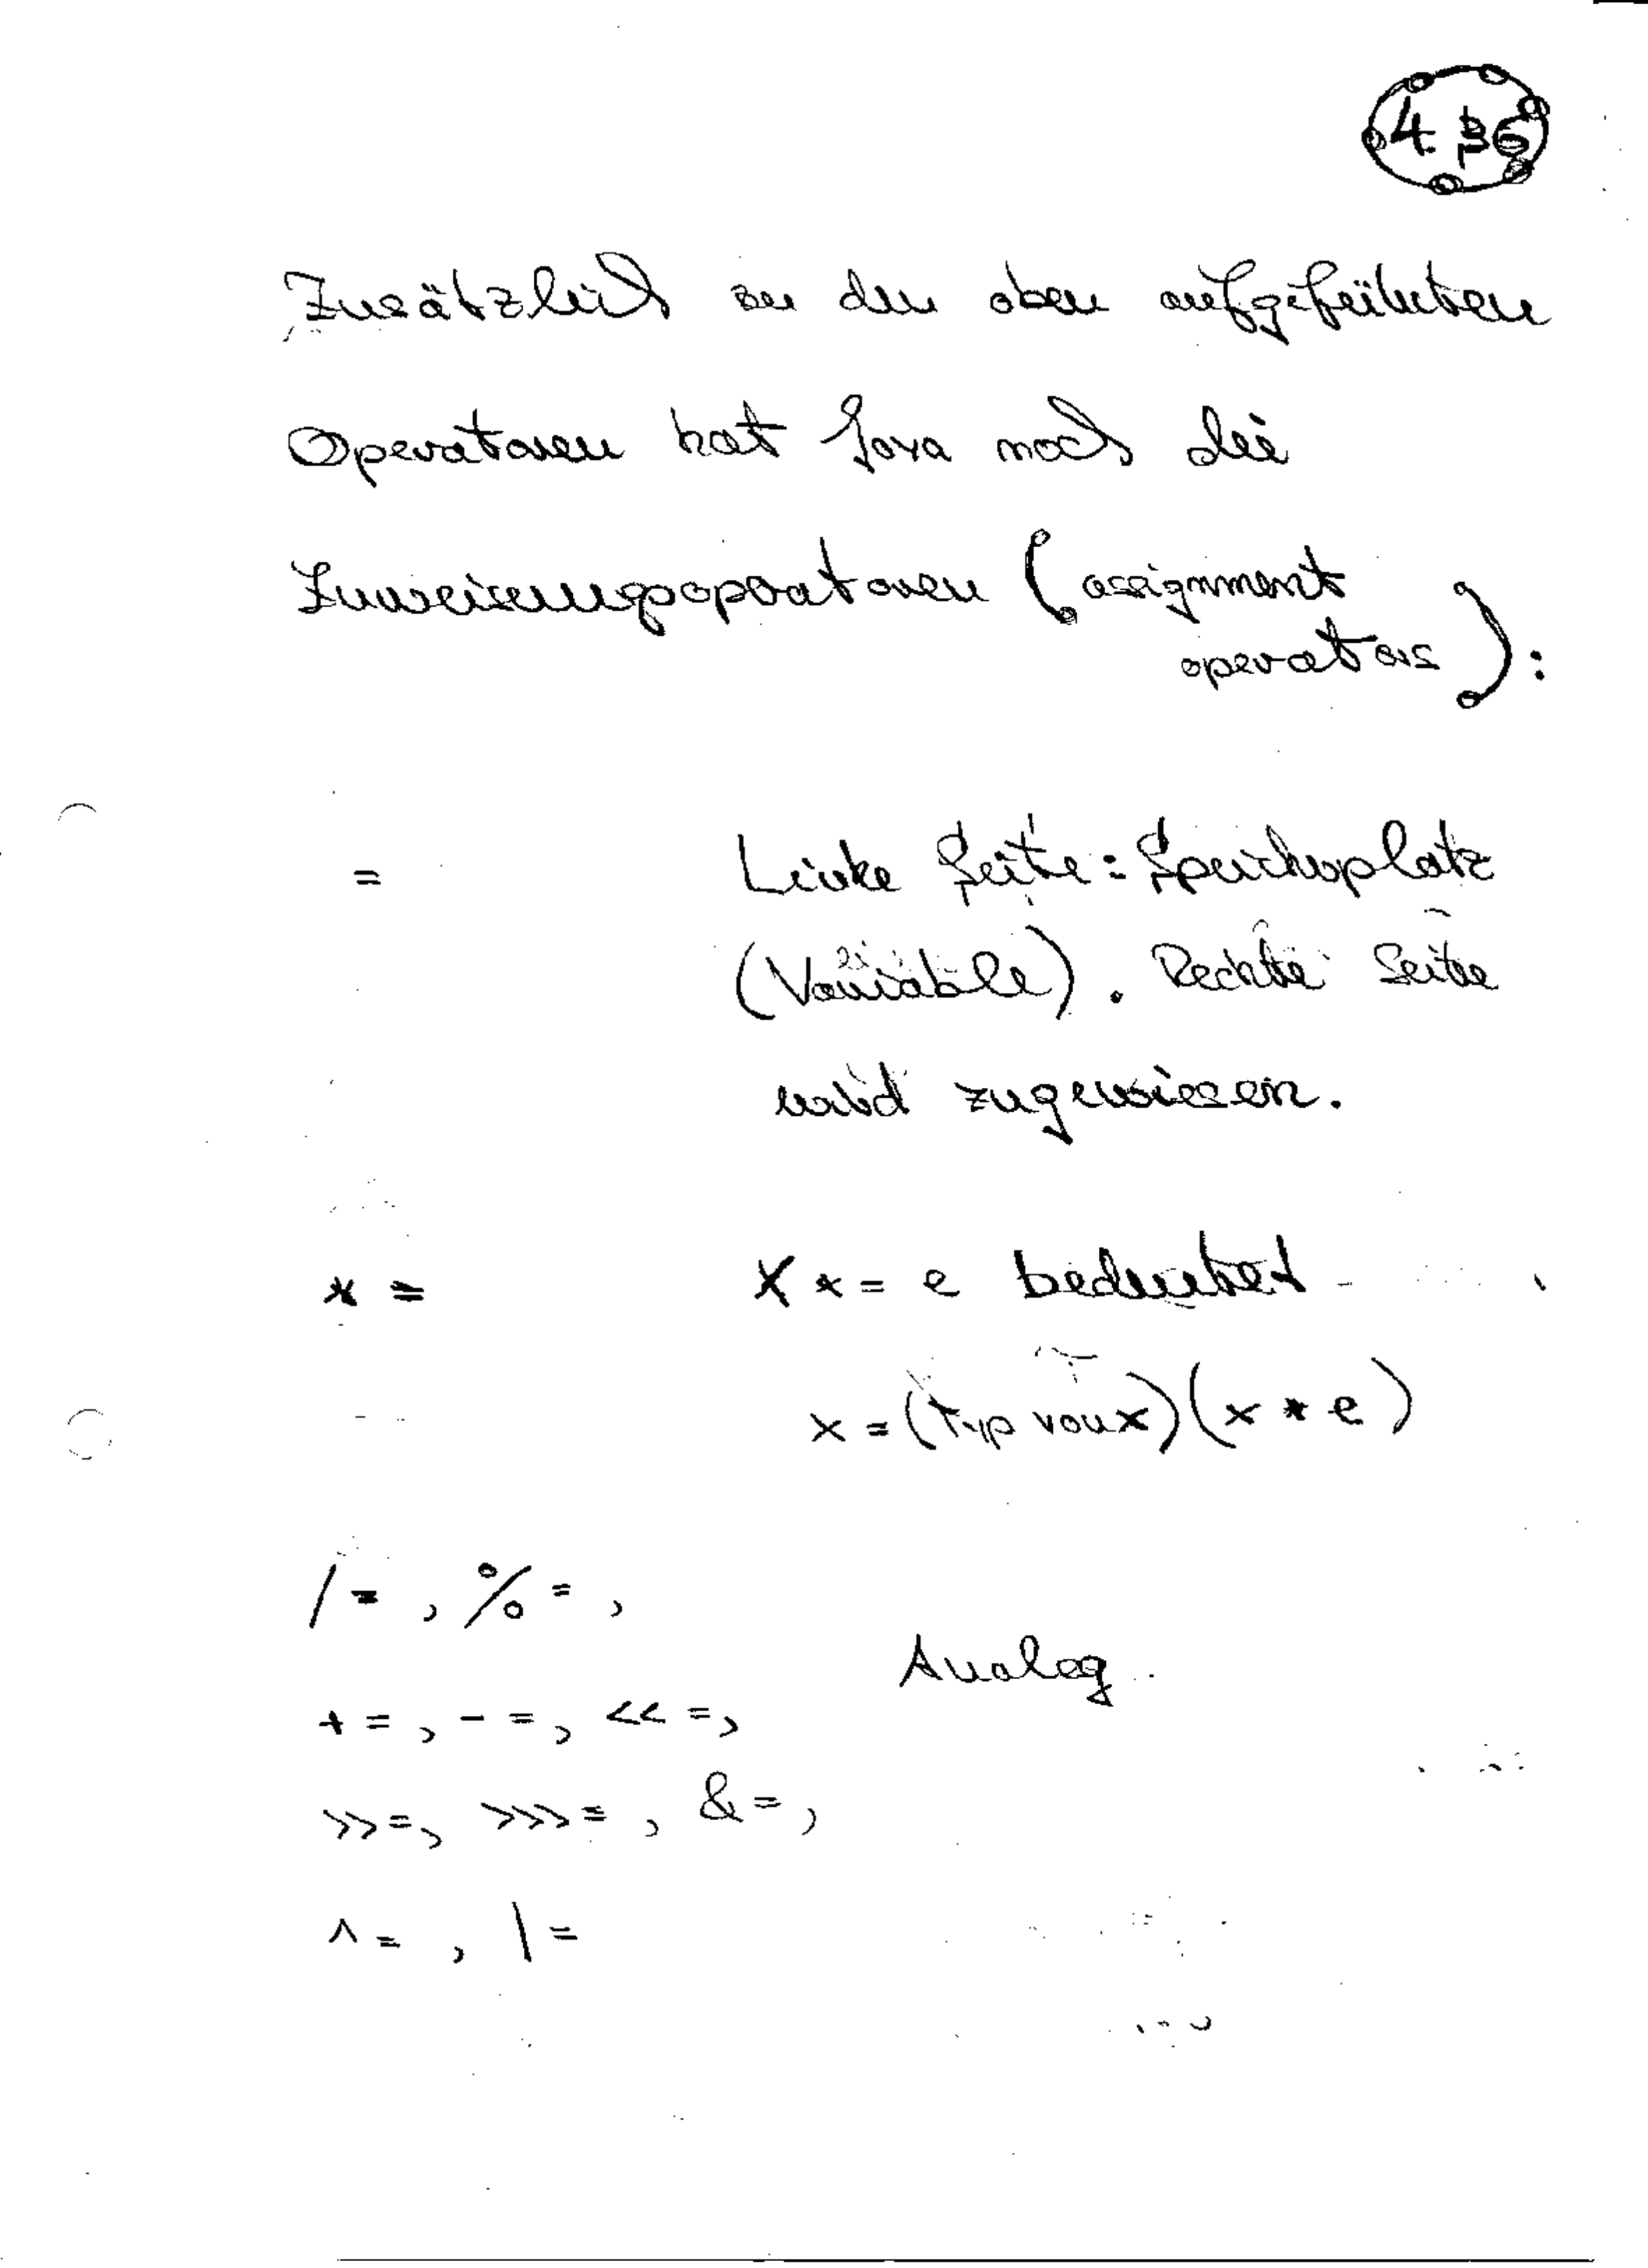 4.36
Zusätzlich zu den oben aufgeführten
Operatoren hat Java noch die
Zuweisungsoperatoren (assignment
operators):
= Linke Seite: Speicherplatz
(Variable). Rechte Seite
wird zugewiesen.
*= x *= e bedeutet
x = (Typ von x)(x * e)
/= , %= ,
Analog.
+= , -= , <<= ,
>>= , >>>= , &= ,
^= , |=